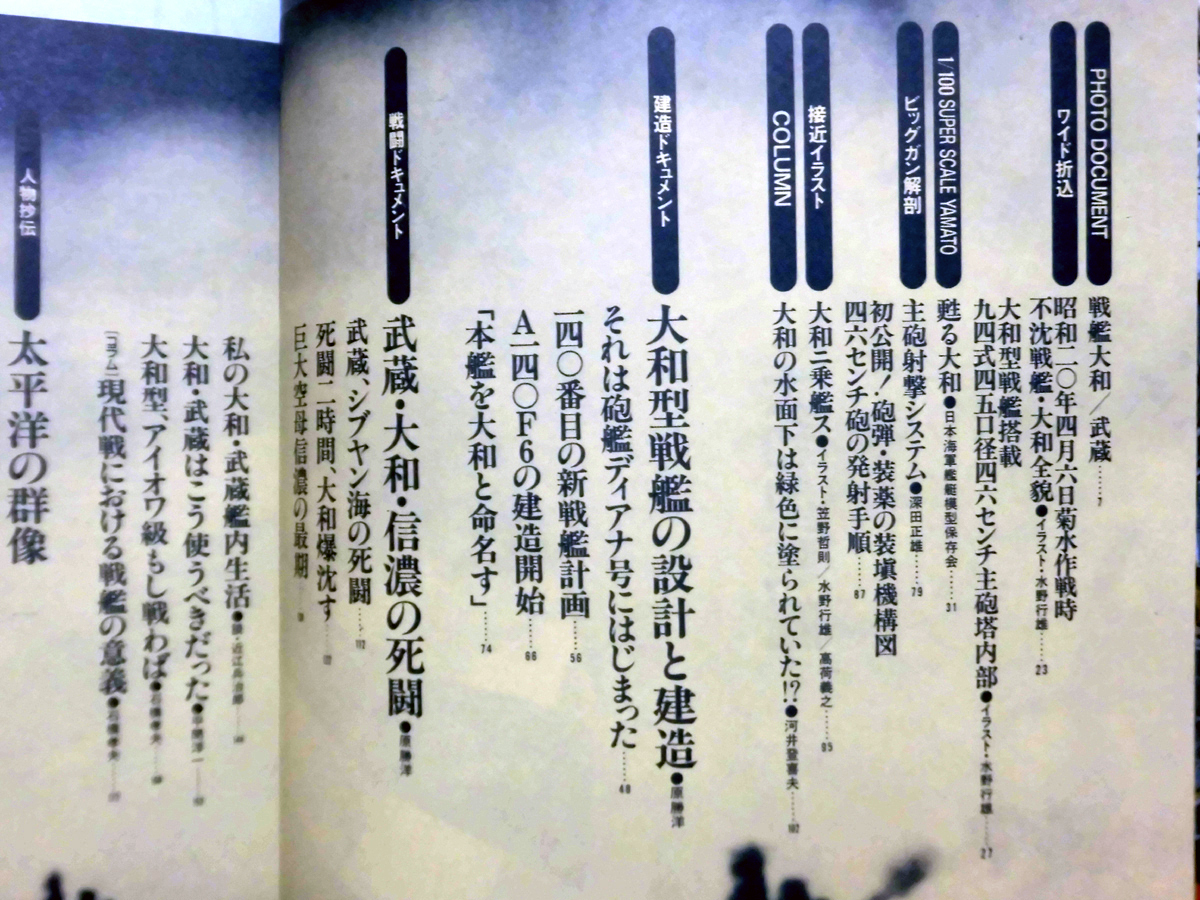 PHOTO DOCUMENT
戦艦大和／武蔵……7
ワイド折込
昭和二〇年四月六日菊水作戦時
不沈戦艦・大和全貌●イラスト・水野行雄……23
大和型戦艦搭載
九四式四五口径四六センチ主砲塔内部●イラスト・水野行雄……27
1/100 SUPER SCALE YAMATO
甦る大和●日本海軍艦艇模型保存会……31
ビッグガン解剖
主砲射撃システム●深田正雄……79
初公開！砲弾・装薬の装填機構図
四六センチ砲の発射手順……87
接近イラスト
大和ニ乗艦ス●イラスト・笠野哲則／水野行雄／高荷義之……95
COLUMN
大和の水面下は緑色に塗られていた!?●河井登喜夫……102
建造ドキュメント
大和型戦艦の設計と建造●原勝洋
それは砲艦ディアナ号にはじまった……48
一四〇番目の新戦艦計画……56
A一四〇F6の建造開始……66
「本艦を大和と命名す」……74
戦闘ドキュメント
武蔵・大和・信濃の死闘●原勝洋
武蔵、シブヤン海の死闘……112
死闘二時間、大和爆沈す……
巨大空母信濃の最期……
私の大和・武蔵艦内生活●
大和・武蔵はこう使うべきだった●
大和型、アイオワ級もし戦わば●石橋孝夫……
［コラム］現代戦における戦艦の意義●石橋孝夫……
人物抄伝
太平洋の群像